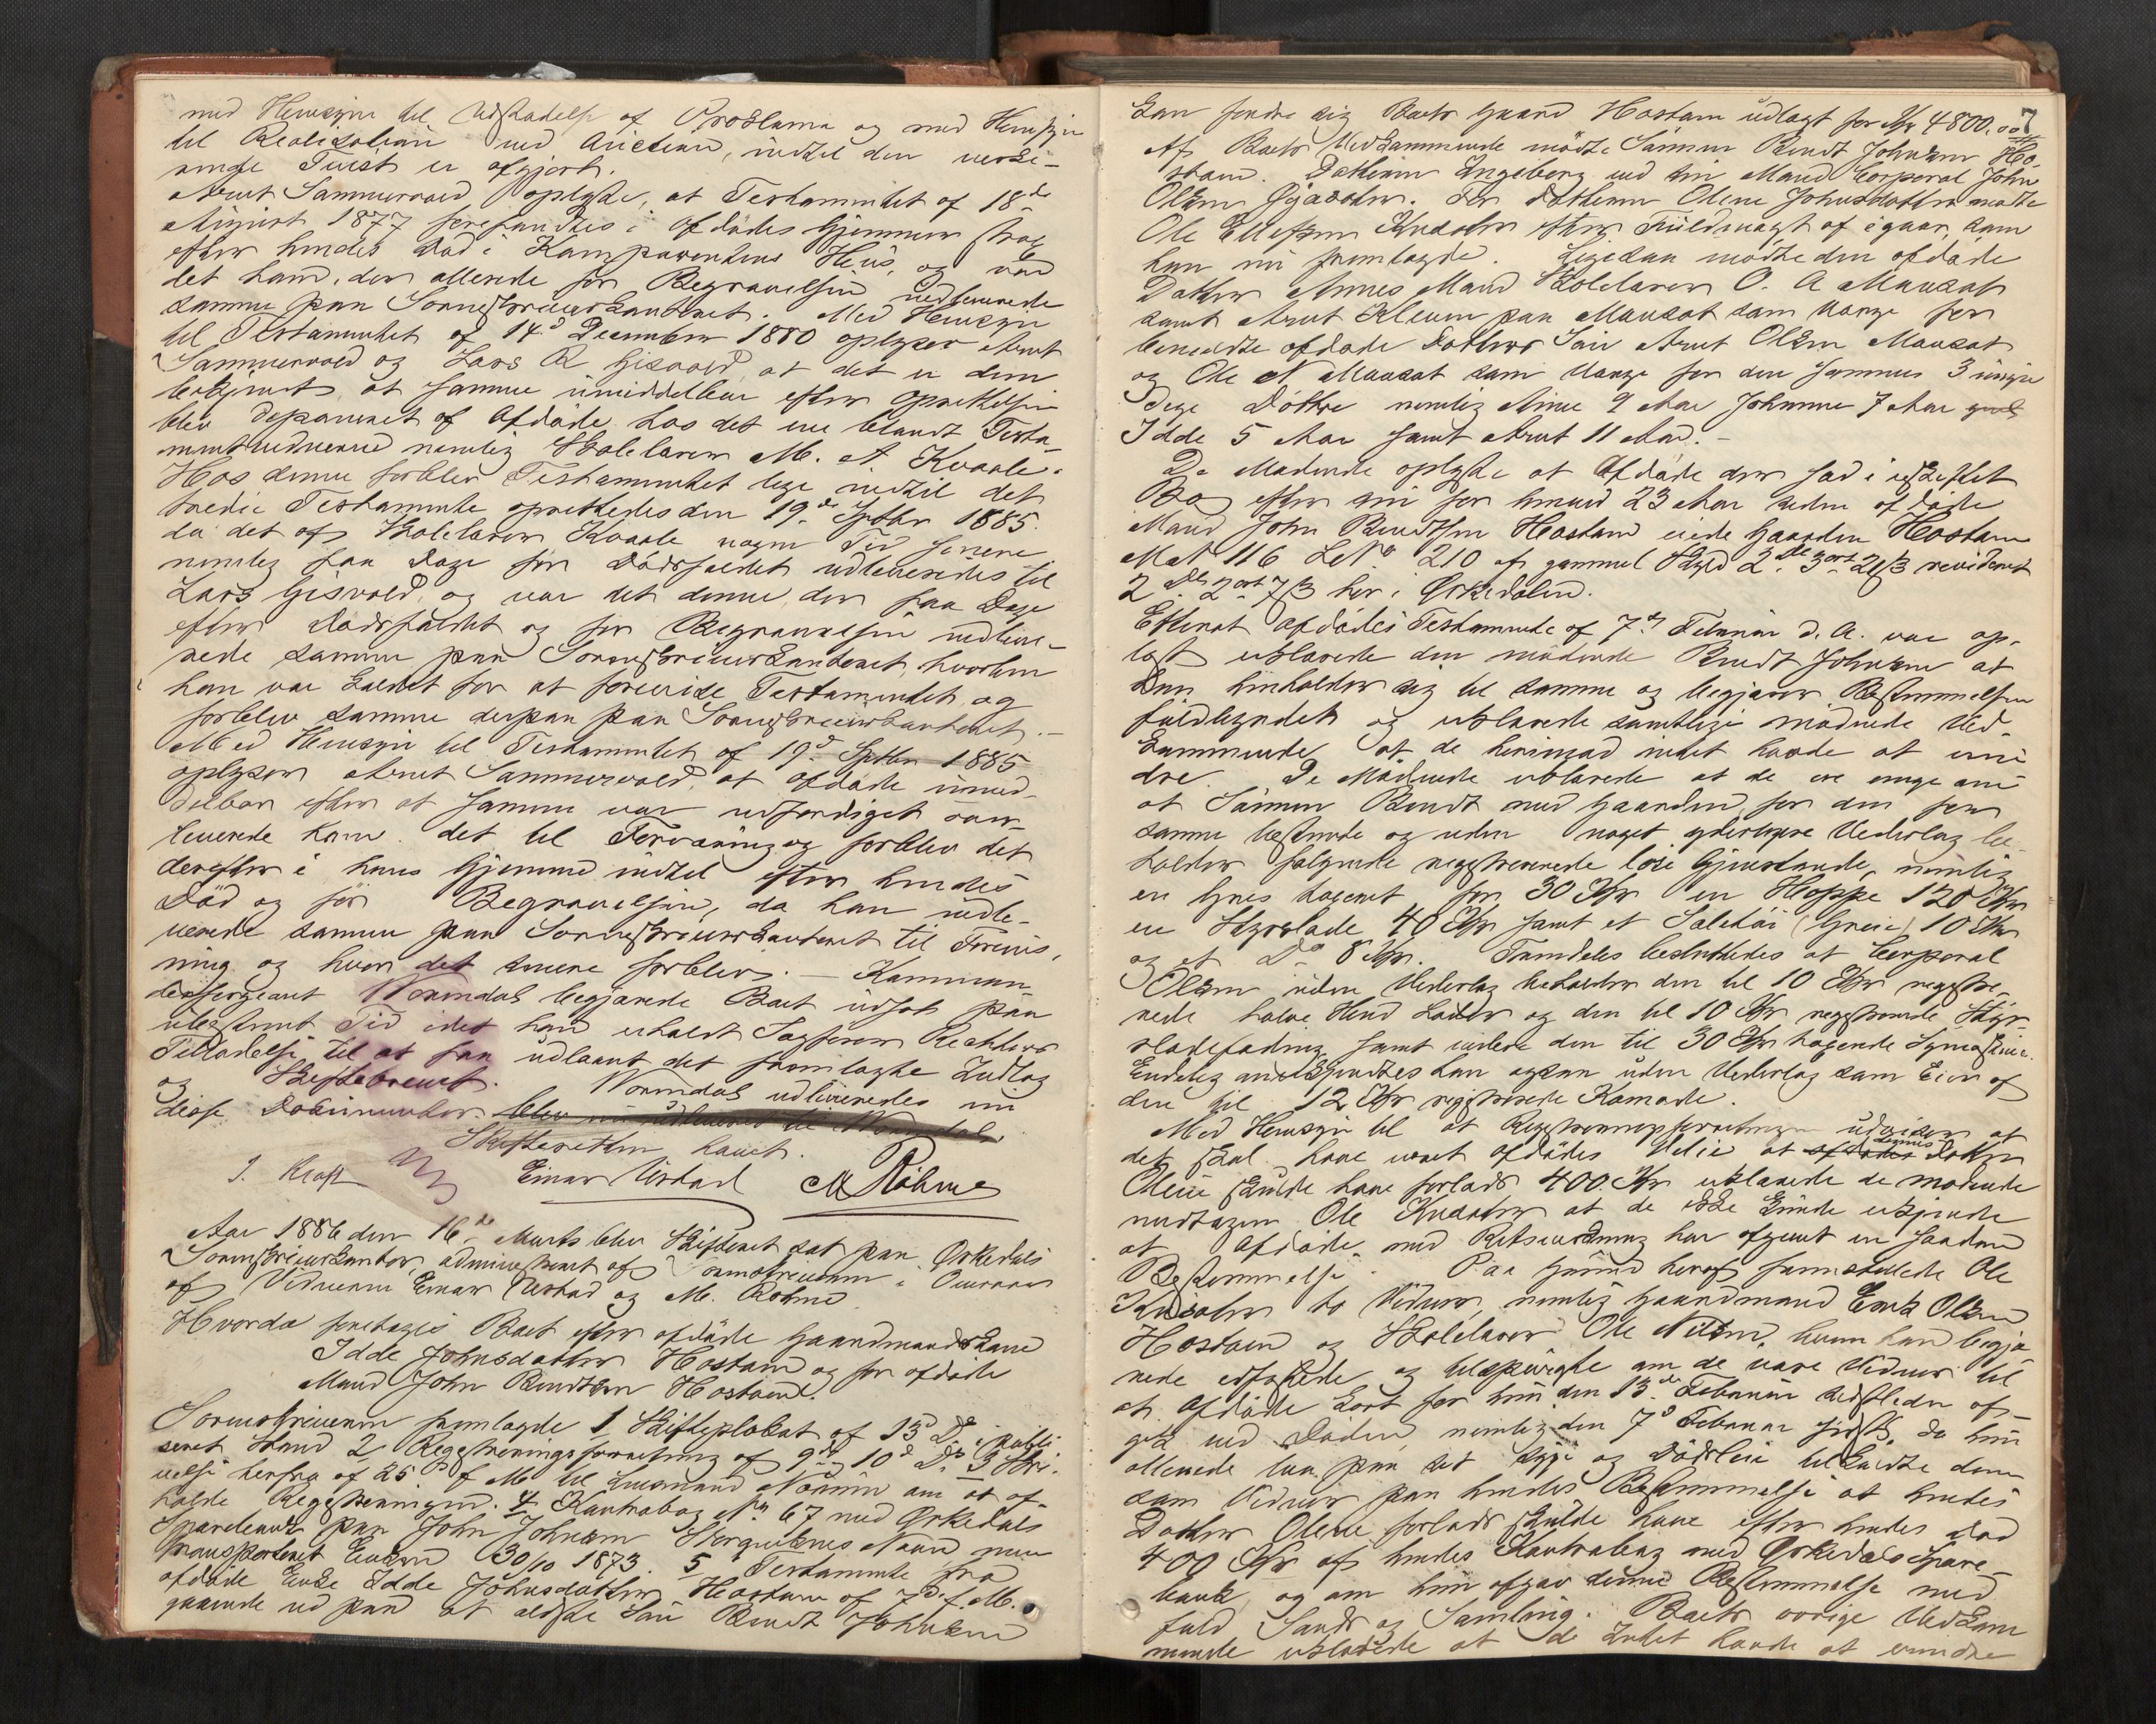 med Hensyn til Udstedelse af Proklama og med Hensyn
til Realisation ved Auction, indtil den verse-
rende Tvist er afgjort.
Arnt Sammervold oplyste, at Testamentet af 18de
August 1877 forefandtes i Afdödes Gjemmer strax
efter hendes Död i Komparentens Hus, og var
det ham, der allerede før Begravelsen indleverede
samme paa Sorenskriverkontoret. Med Hensyn
til Testamentet af 14d December 1880 oplyser Arnt
Sammervold og Lars R Gisvold, at det er dem
bekjendt, at samme umiddelbar efter Oprettelsen
blev deponeret af Afdöde hos det ene blandt Testa-
mentvidnerne nemlig Skolelærer M. A. Kvaale.
Hos denne forblev Testamentet lige indtil det
tredie Testamente oprettedes den 19de Septbr 1885.
da det af Skolelærer Kvaale nogen Tid senere
nemlig faa Dage før Dödsfaldet udleveredes til
Lars Gisvold, og var det denne, der faa Dage
efter Dödsfaldet og før Begravelsen indleve-
rede samme paa Sorenskriverkontoret, hvortil
han var kaldet for at forevise Testamentet, og
forblev samme derpaa paa Sorenskriverkontoret.-
Med Hensyn til Testamentet af 19d Septbr 1885
oplyser Arnt Sammervold, at afdöde umid-
delbar efter at samme var udfærdiget over-
leverede ham det til Forvaring og forblev det
derefter i hans Gjemme indtil efter hendes
Död og før Begravelsen, da han indle-
verede samme paa Sorenskriverkontoret til Foreviis-
ning og hvor det senere forblev. - Komman-
dersergeant Wormdal begjærede Boet udsat paa
ubestemt Tid idet han erholdt Sagfører Richters
Tilladelse til at faa udlaant det fremlagte Indlæg
og Skiftebrevet. Wormdal udleveredes nu
disse Documenter. blev nu udleveret til Wormdal.
Skifteretten hævet.
J. Kraft Einar Urstad M Röhme
Aar 1886 den 16de Marts blev Skifteret sat paa Orkedals
Sorenskriverkontor, administreret af Sorenskriveren i Overvær
af Vidnerne Einar Urstad og M. Röhme
Hvorda foretoges Boet efter afdöde Gaardmandskone
Idde Johnsdatter Hostoen og før afdöde
Mand John Bendtsen Hostoen.
Sorenskriveren fremlagde 1 Skifteplakat af 13d Ds i publi
ceret Stand 2 Registreringsforretning af 9d og 10d Ds 3 Skri-
velse herfra af 25d f M til Lensmand Norum om at af-
holde Registreringen. 4 Kontrabog No 67 med Orkedals
Sparebank paa John Johnsen Storqunsenes Navn men
transporteret Enken 30/10 1873. 5 Testamente fra
afdöde Enke Idde Johnsdatter Hostoen af 7d f. M.
gaaende ud paa at ældste Sön Bendt Johnsen
7
kan fordre sig Boets Gaard Hostoen udlagt for Kr 4800.00
Af Boets Vedkommende mödte Sönnen Bendt Johnsen Ho-
stoen. Datteren Ingeborg ved sin Mand Corporal John
Olsen Gjøaasen. For Datteren Olene Johnsdatter mödte
Ole Ellefsen Knudsen efter Fuldmagt af igaar, som
han nu fremlagde. Ligesaa mödte den afdöde
Datter Annes Mand Skolelærer O. A Mausæt
samt Arnt Kleven paa Mausæt som Værge for
bemeldte afdöde Datters Sön Arnt Olsen Mausæt
og Ole N Mausæt som Værge for den sammes 3 umyn
dige Döttre nemlig Anne 9 Aar Johanne 7 Aar
Idde 5 Aar samt Arnt 11 Aar.-
De Mödende oplyste at Afdöde der sad i uskiftet
Bo efter sin for henved 23 Aar siden afdöde
Mand John Bendtsen Hostoen eiede Gaarden Hostoen
Mat N 116 LNo 210 af gammel Skyld 2 Dlr 3 ort 21 ß revideret
2 Dlr 2 ort 7 ß her i Orkedalen.
Efterat Afdödes Testamente af 7de Februar d. A. var op-
læst erklærede den mödende Bendt Johnsen at
han henholder sig til samme og begjærer Bestemmelsen
fuldbyrdet og erklærede samtlige mödende Ved-
kommende at de herimod intet havde at erin-
dre. De Mödende erklærede at de ere enige om
at Sönnen Bendt med Gaarden, for den som
samme bestemte og uden noget yderligere Vederlag be-
holder følgende registrerede löse Gjenstande, nemlig
en Grus taxeret for 30 Kr en Hoppe 120 Kr
en Styrslade 40 Kr samt et Seletöi (Greie) 10 Kr
og et Do 8 Kr. Fremdeles besluttedes at Corporal
Olsen uden Vederlag beholder den til 10 Kr registre-
rede halve Hund Lader og den til 10 Kr registrerede Styr-
sladefading samt videre den til 30 Kr tagende Symaskine.
Endelig anerkjendtes han ogsaa uden Vederlag som Eier af
den til 12 Kr registrerede Komode.
Med Hensyn til at Registreringsforretningen udviser at
det skal have været afdödes Vilie at afdödes dennes Datter
Olene skulde have forlods 400 Kr erklærede de mödende
undtagen Ole Knudsen at de ikke kunde erkjende
at Afdöde med Retsvirkning har afgivet en saadan
Bestemmelse. Paa Grund heraf fremstillede Ole
Knudsen to Vidner, nemlig Gaardmand Erik Olsen
Hostoen og Skolelærer Ole Nilsen, hvem han begjæ
rede edfæstede og tilspurgte om de vare Vidner til
at Afdöde kort før hun den 13de Februar sidstleden af-
gik ved Döden, nemlig den 7d Februar sidst, da hun
allerede laa paa sit Syge og Dödsleie tilkaldte dem
som Vidner paa hendes Bestemmelse at hendes
Datter Olene forlods skulde have efter hendes Död
400 Kr af hendes Kontrabog med Orkedals Spare-
bank, og om hun afgav denne Bestemmelse med
fuld Sands og Samling. Boets övrige Vedkom
mende erklærede at de Intet havde at erindre